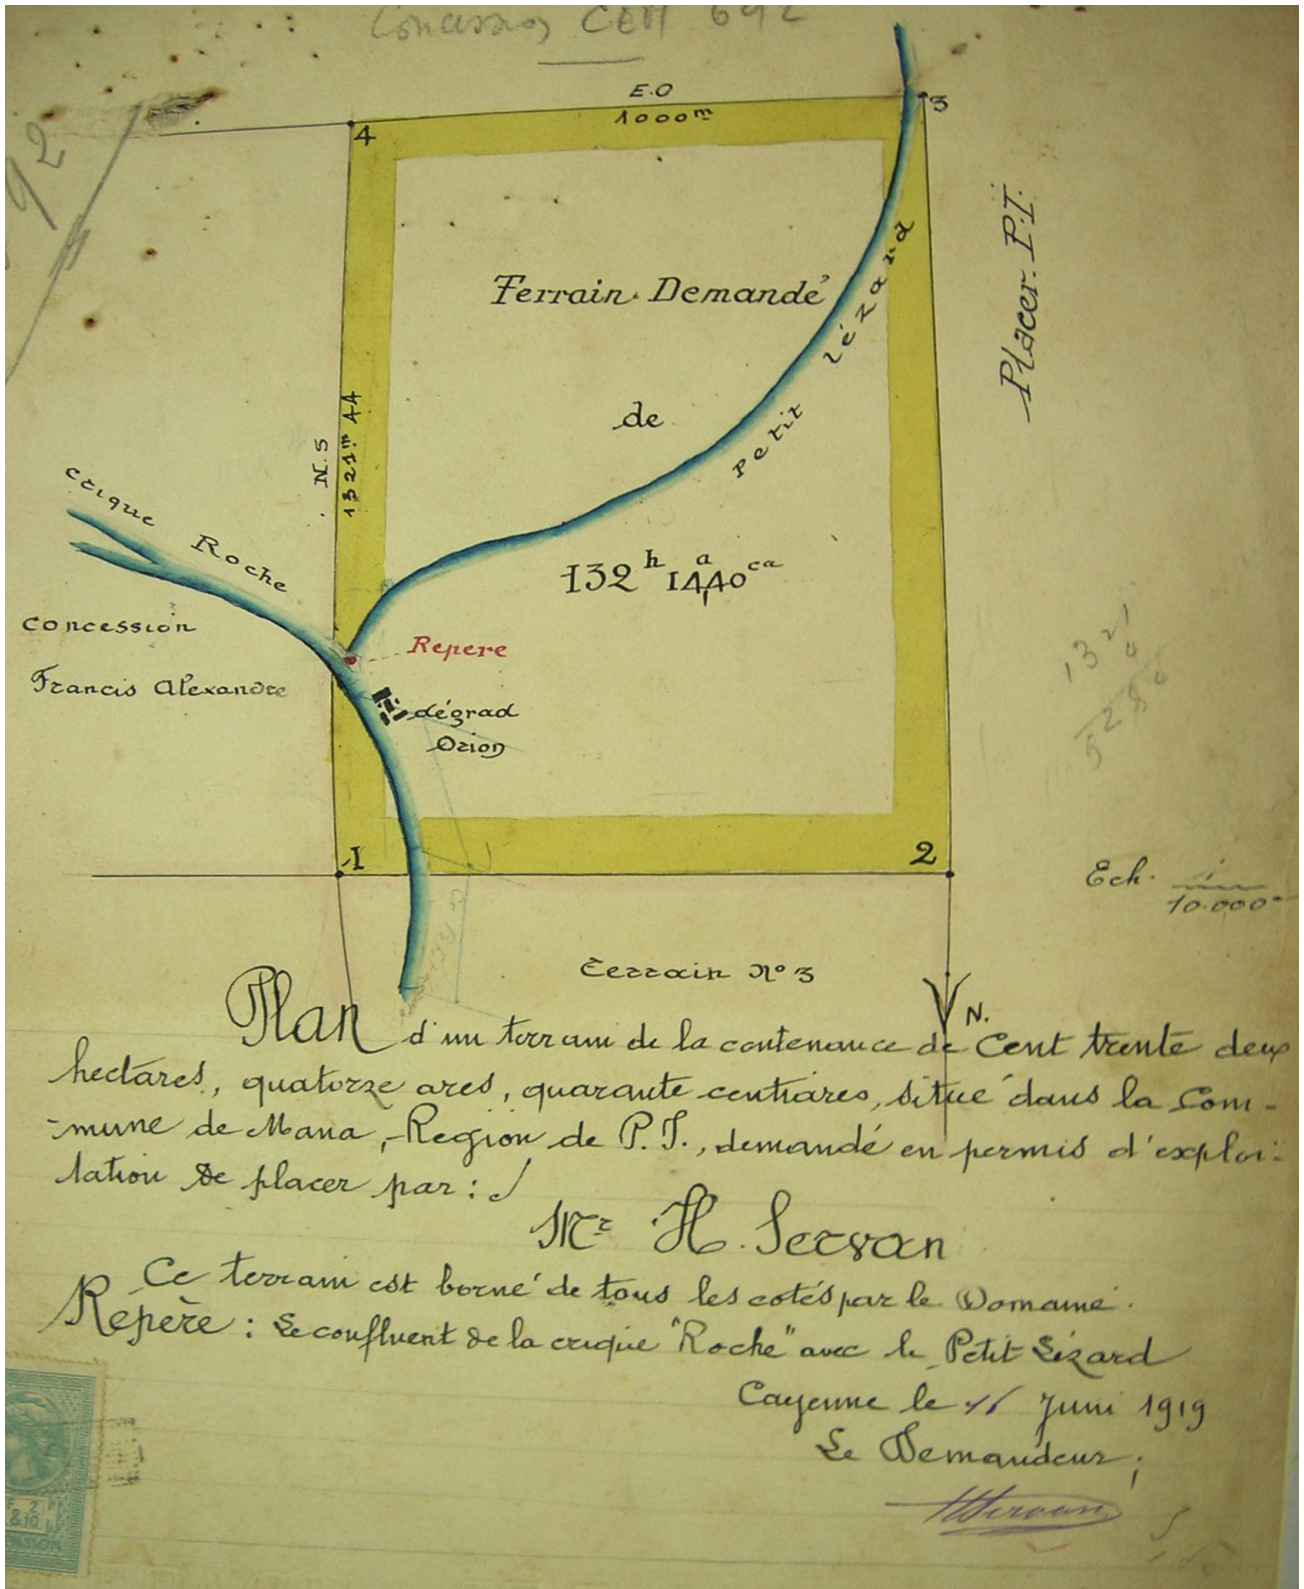 Concession CEM 692
92
E.O
1000m
4
3
Placer. P.I.
Terrain Demandé
petit lézard
de
N.S
1321m 44
132h 14a40ca
crique Roche
concession
Francis Alexandre
Repere
dégrad
Orion
1321
4
528
1
2
Ech. 1/10.000e
Terrain No 3
N.
Plan d'un terrain de la contenance de Cent trente deux
hectares, quatorze ares, quarante centiares, situé dans la Com-
-mune de Mana, Région de P.I., demandé en permis d'exploi-
tation de placer par :
Mr H. Servan
Ce terrain est borné de tous les cotés par le Domaine.
Repère : Le confluent de la crique "Roche" avec le Petit Lézard
Cayenne le 16 Juni 1919
Le Demandeur ;
HServan